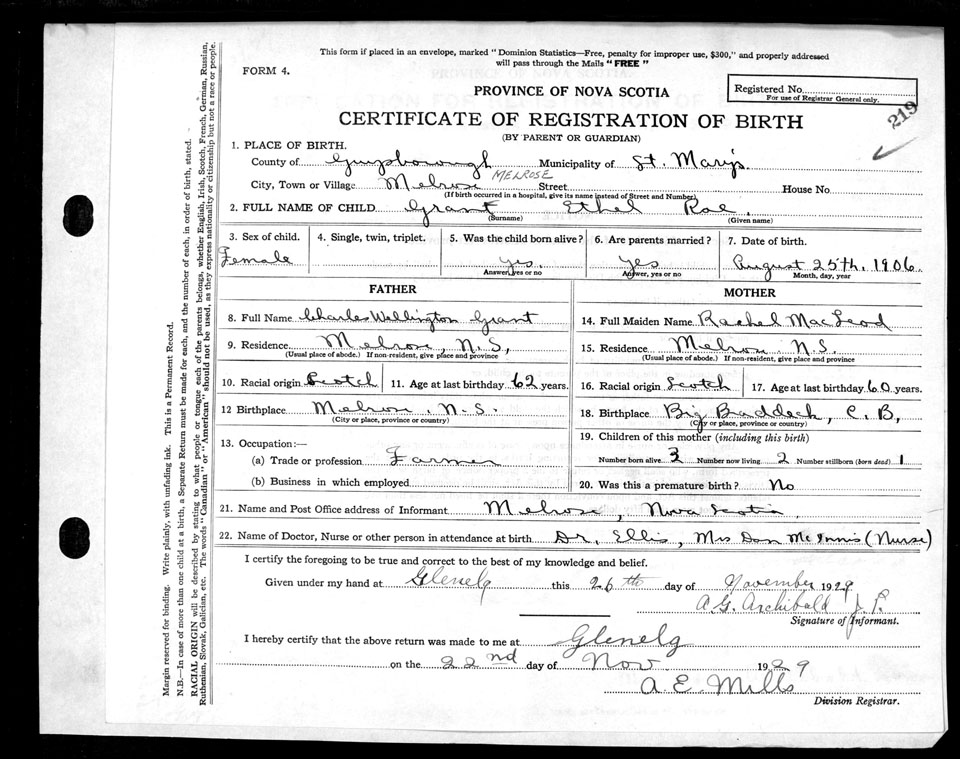 This form if placed in an envelope, marked "Dominion Statistics—Free, penalty for improper use, $300," and properly addressed
will pass through the Mails "FREE"
FORM 4.
PROVINCE OF NOVA SCOTIA
Registered No.
For use of Registrar General only.
219
CERTIFICATE OF REGISTRATION OF BIRTH
(BY PARENT OR GUARDIAN)
1. PLACE OF BIRTH.
County of Guysborough Municipality of St. Mary's
MELROSE
City, Town or Village Melrose Street House No
(If birth occurred in a hospital, give its name instead of Street and Number)
2. FULL NAME OF CHILD Grant Ethel Rae
(Surname) (Given name)
3. Sex of child. 4. Single, twin, triplet. 5. Was the child born alive? 6. Are parents married? 7. Date of birth.
Female yes. yes August 25th, 1906
Answer, yes or no Answer, yes or no Month, day, year
FATHER MOTHER
8. Full Name Charles Wellington Grant 14. Full Maiden Name Rachel MacLeod
9. Residence Melrose, N.S, 15. Residence Melrose N.S.
(Usual place of abode.) If non-resident, give place and province (Usual place of abode.) If non-resident, give place and province
10. Racial origin Scotch 11. Age at last birthday 62 years. 16. Racial origin Scotch 17. Age at last birthday 60 years.
12 Birthplace Melrose, N.S. 18. Birthplace Big Baddeck, C.B,
(City or place, province or country) (City or place, province or country)
19. Children of this mother (including this birth)
13. Occupation:—
(a) Trade or profession Farmer Number born alive 3 Number now living 2 Number stillborn (born dead) 1
(b) Business in which employed 20. Was this a premature birth? No
21. Name and Post Office address of Informant Melrose, Nova Scotia
22. Name of Doctor, Nurse or other person in attendance at birth Dr. Ellis, Mrs Dan McInnis (Nurse)
I certify the foregoing to be true and correct to the best of my knowledge and belief.
Given under my hand at Glenelg this 26th day of November 1929
A.G. Archibald J.P.
Signature of Informant.
I hereby certify that the above return was made to me at Glenelg
on the 22nd day of Nov 1929
A. E. Mills
Division Registrar.
Margin reserved for binding. Write plainly, with unfading ink. This is a Permanent Record.
N.B.—In case of more than one child at a birth, a Separate Return must be made for each, and the number of each, in order of birth, stated.
RACIAL ORIGIN will be described by stating to what people or tongue each of the parents belongs, whether English, Irish, Scotch, French, German, Russian,
Ruthenian, Slovak, Galician, etc. The words "Canadian" or "American" should not be used, as they express nationality or citizenship but not a race or people.